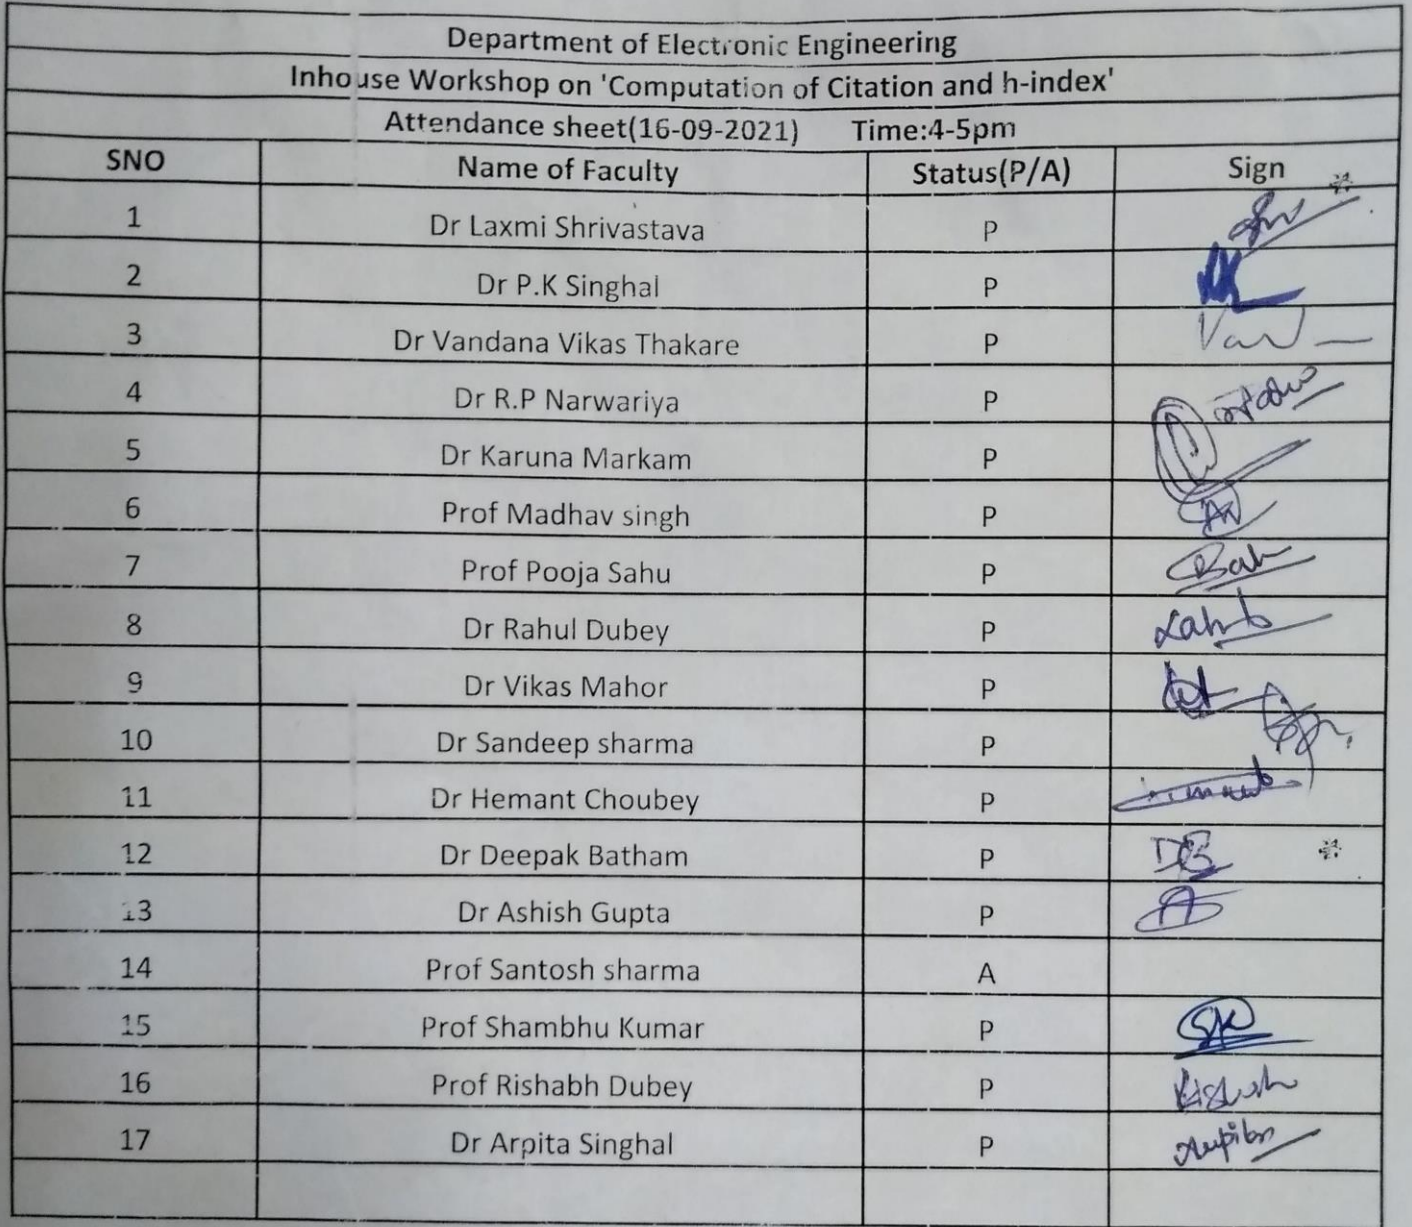 Department of Electronic Engineering
Inhouse Workshop on 'Computation of Citation and h-index'
Attendance sheet(16-09-2021) Time:4-5pm
SNO Name of Faculty Status(P/A) Sign
1 Dr Laxmi Shrivastava P
2 Dr P.K Singhal P
3 Dr Vandana Vikas Thakare P
4 Dr R.P Narwariya P
5 Dr Karuna Markam P
6 Prof Madhav singh P
7 Prof Pooja Sahu P
8 Dr Rahul Dubey P
9 Dr Vikas Mahor P
10 Dr Sandeep sharma P
11 Dr Hemant Choubey P
12 Dr Deepak Batham P DB
13 Dr Ashish Gupta P
14 Prof Santosh sharma A
15 Prof Shambhu Kumar P
16 Prof Rishabh Dubey P
17 Dr Arpita Singhal P